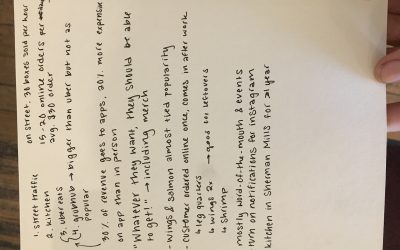 on street. 30 boxes sold per hour
15-20 online orders per
avg. $30 order
1. street traffic
2. kitchen
3. ubereats
4. grubhub → bigger than uber but not as popular
30% of revenue goes to apps. 20% more expensive
on app than in person
"Whatever they want, they should be able
to get!" → including merch
- wings & salmon almost tied popularity
- customer ordered online once, comes in after work
↳ leg quarters
↳ wings 2x → good for leftovers
↳ shrimp
mostly word-of-the-mouth & events
turn on notifications for instagram
kitchen in Sherman Mills for a 1 year